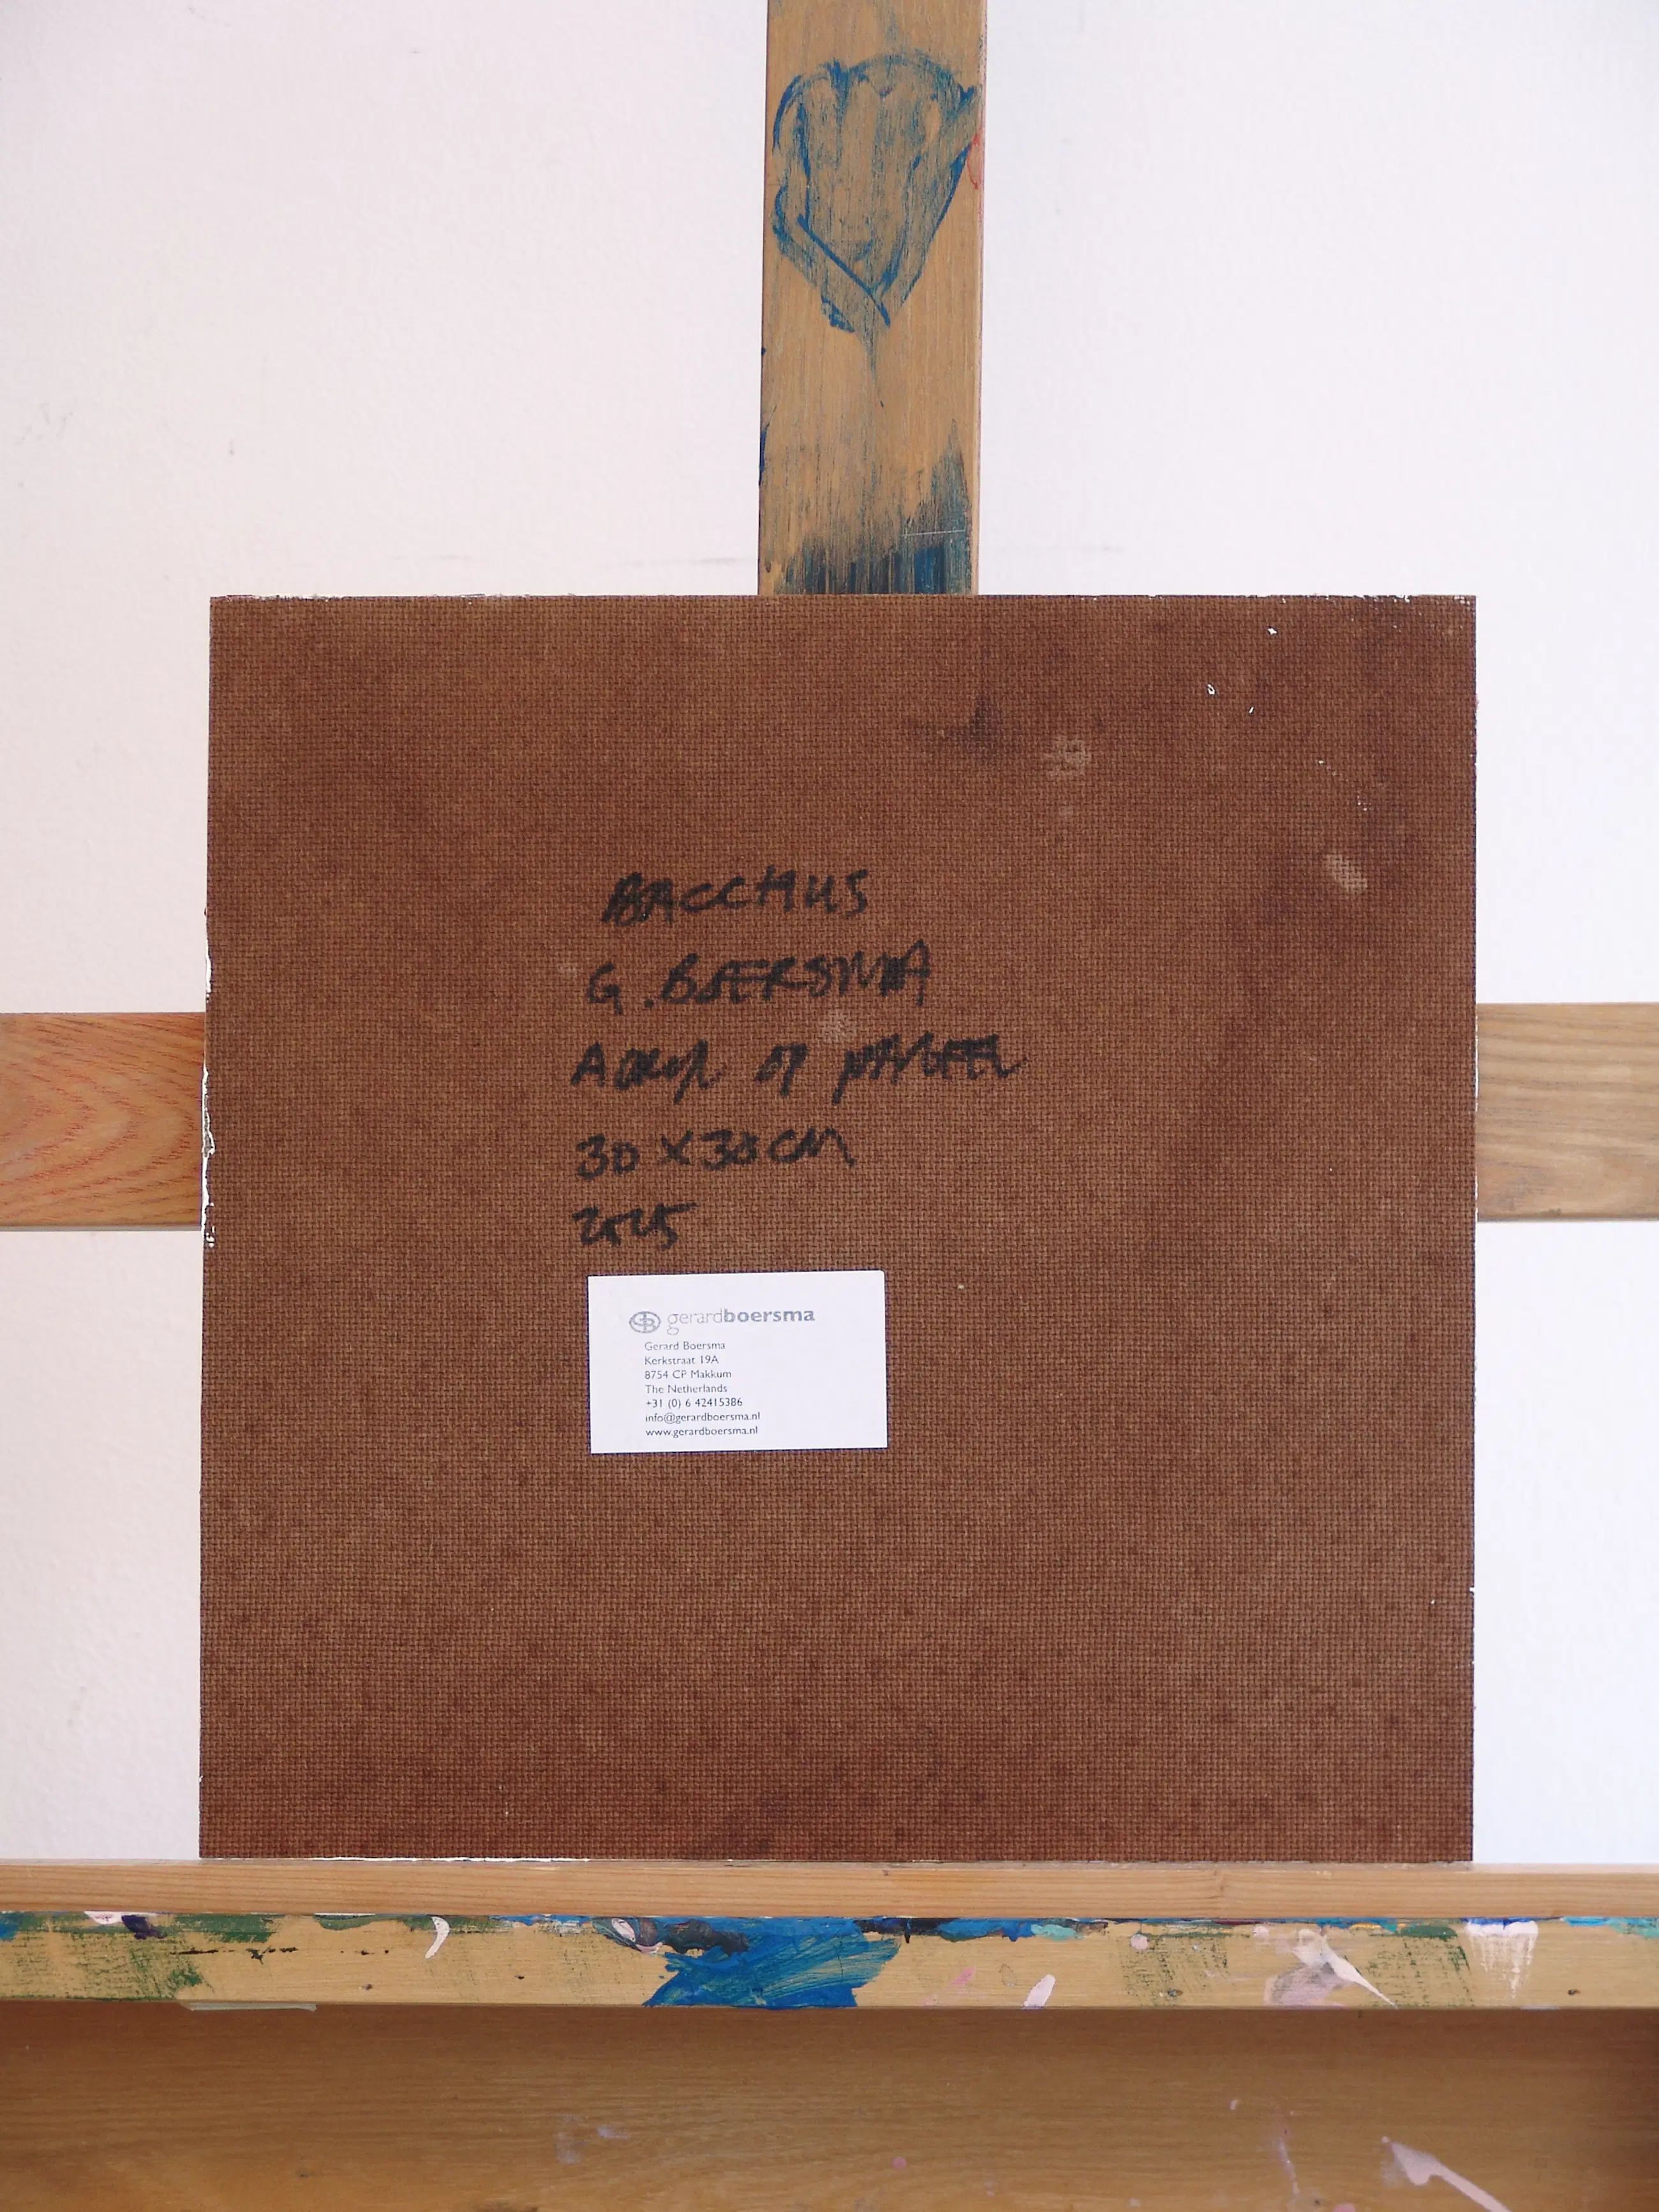 BACCHUS
G. BOERSMA
ACRYL OP PANEEL
30 X 30 CM
2025
GB gerardboersma
Gerard Boersma
Kerkstraat 19A
8754 CP Makkum
The Netherlands
+31 (0) 6 42415386
info@gerardboersma.nl
www.gerardboersma.nl